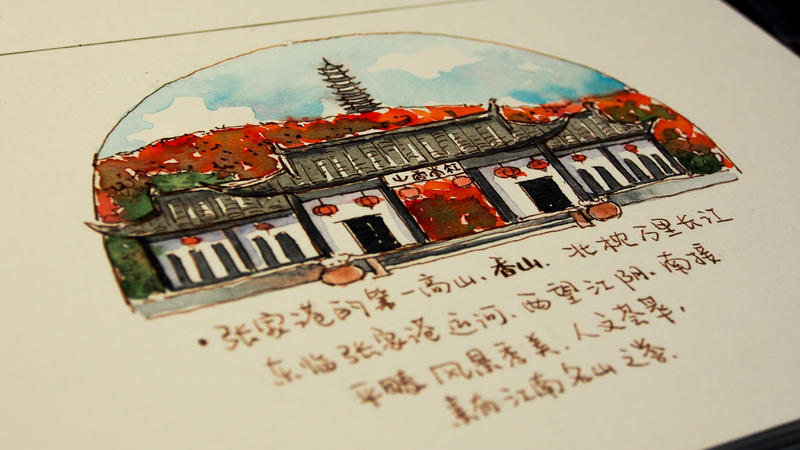 ·张家港的第一高山、香山.北枕万里长江
东临张家港运河.西望江阴.南
平畴 风景秀美.人文荟萃,
素有江南名山之誉.